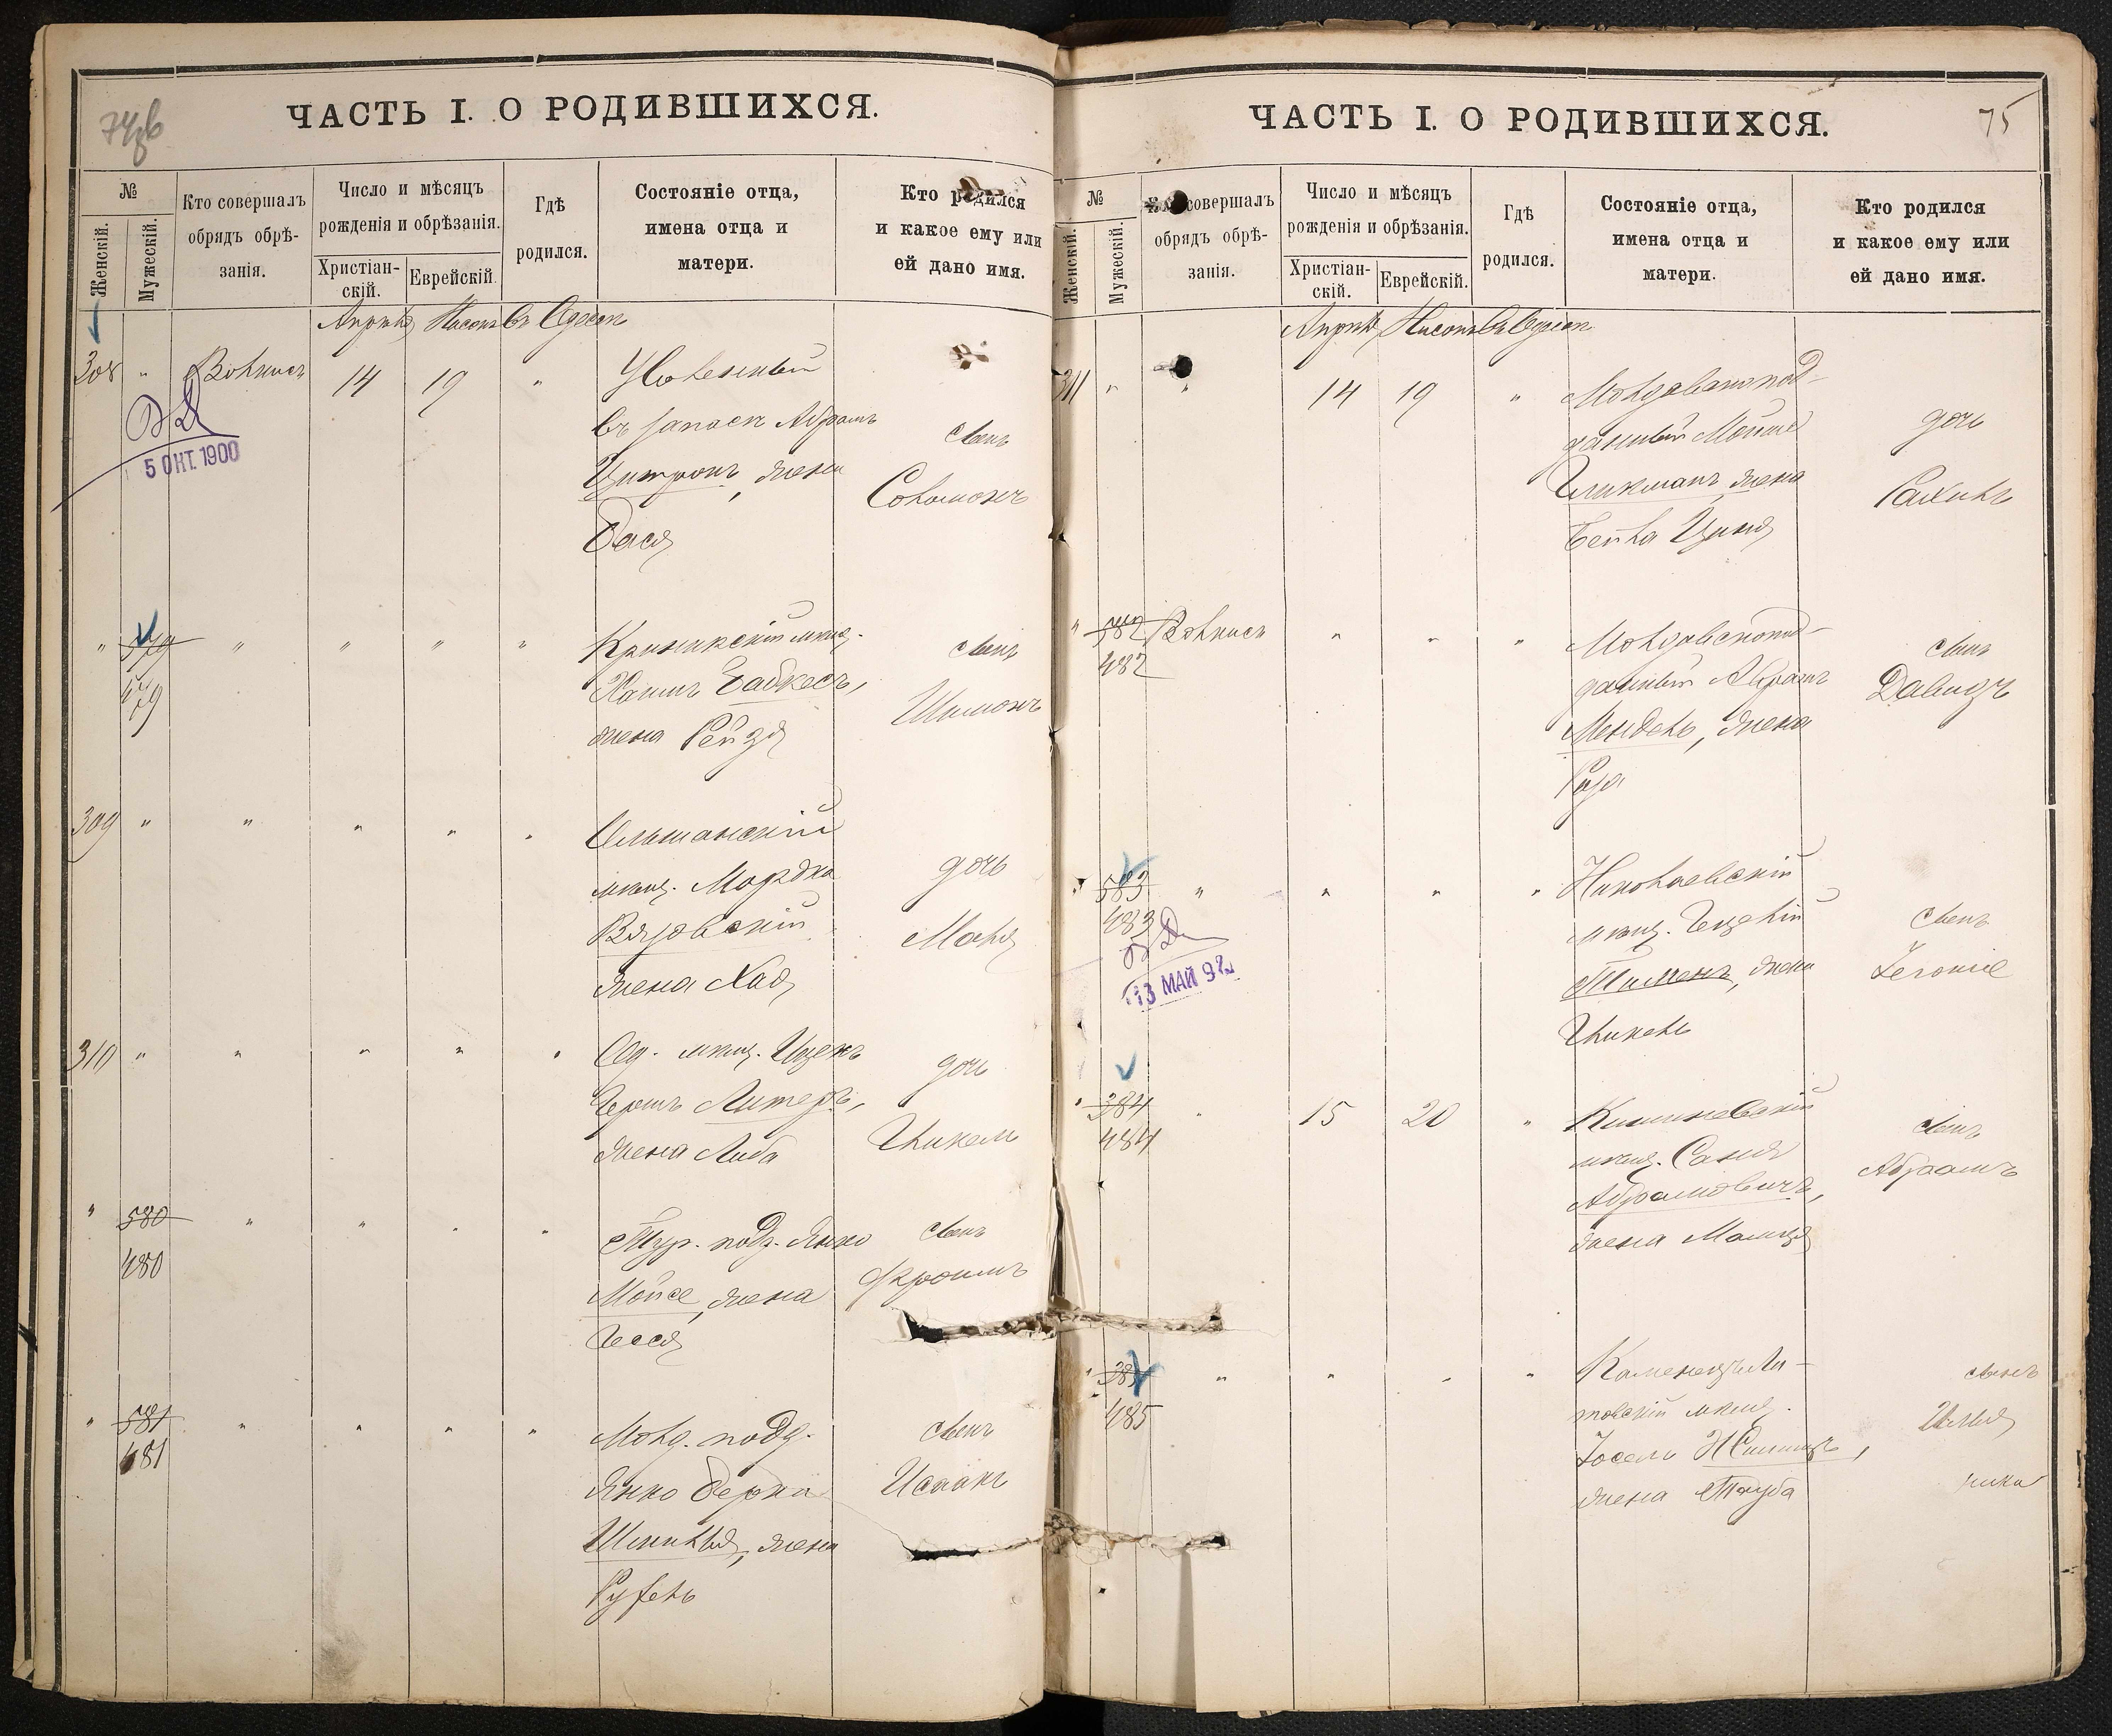 74об
ЧАСТЬ I. О РОДИВШИХСЯ.
№
Женскій.
Мужескій.
Кто совершалъ
обрядъ обрѣ-
занія.
Число и мѣсяцъ
рожденія и обрѣзанія.
Христіан-
скій.
Еврейскій.
Гдѣ
родился.
Состояніе отца,
имена отца и
матери.
Кто родился
и какое ему или
ей дано имя.
Апрѣль Нисонъ Въ Одессѣ
308 " 14 19 "
Уволенный
въ запасъ Абрамъ
Цитронъ, жена
Бася
сынъ
Соломонъ
5 ОКТ. 1900
" 579 " " " "
479
мѣщ.
Хаимъ
жена Рейзя
сынъ
Шимонъ
309 " " " " "
Ольшанскій
мѣщ. Мордко
Вязовскій
жена Хая
дочь
Маня
310 " " " " "
Од. мѣщ. Ицекъ
Гершъ Литеръ,
жена Либа
дочь
" 580 " " " "
480
Тур. подд. Янко
Мойсе, жена
Гесся
сынъ
Фроимъ
" 581 " " " "
481
Молд. подд.
Янко Берко
жена
сынъ
Исаакъ
75
ЧАСТЬ I. О РОДИВШИХСЯ.
№
Женскій.
Мужескій.
совершалъ
обрядъ обрѣ-
занія.
Число и мѣсяцъ
рожденія и обрѣзанія.
Христіан-
скій.
Еврейскій.
Гдѣ
родился.
Состояніе отца,
имена отца и
матери.
Кто родился
и какое ему или
ей дано имя.
Апрѣль Нисонъ Въ Одессѣ
311 " " 14 19 "
Молдаванопод-
данный Мойше
Гликманъ, жена
Бейла Циня
дочь
Рахиль
" 582 " " "
482
Молдавскопод-
данный Абрамъ
Мендель, жена
Роза
сынъ
Давидъ
" 583 " " " "
483
Николаевскій
мѣщ.
жена
сынъ
13 МАЙ 9
" 584 " 15 20 "
484
Кишиневскій
мѣщ. Саня
Абрамовичъ,
жена Малця
сынъ
Абрамъ
" 585 " " " "
485
Каменецъ-Ли-
товскій мѣщ.
Іосель
жена Тауба
сынъ